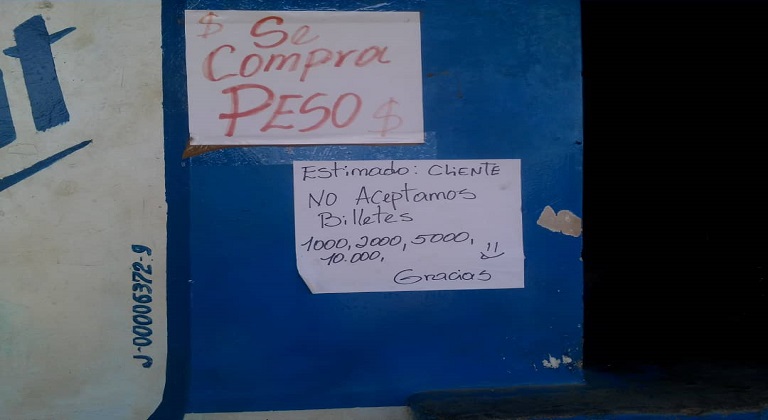 $ Se
Compra
PESO $
Estimado: CLIENTE
NO Aceptamos
Billetes
1000, 2000, 5000,
10.000,
Gracias
J-00006372-9